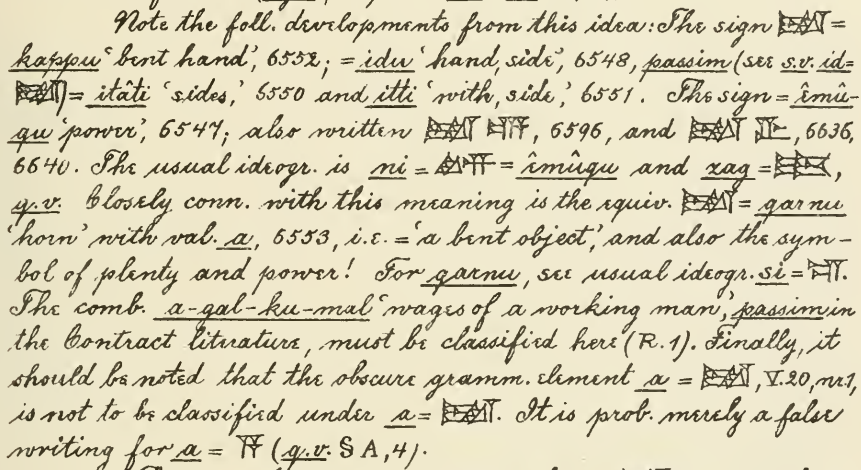 Note the foll. developments from this idea: The sign 𒀉 =
kappu 'bent hand', 6552; = idu 'hand, side', 6548, passim (see s.v. id =
𒀉) = itâti 'sides,' 6550 and itti 'with, side,' 6551. The sign = êmû-
qu 'power', 6547; also written 𒀉, 6596, and 𒀉, 6636,
6640. The usual ideogr. is ni = = êmûqu and zag = 𒍠,
q.v. Closely conn. with this meaning is the equiv. 𒀉 = qarnu
'horn' with val. a, 6553, i.e. = 'a bent object,' and also the sym-
bol of plenty and power! For qarnu, see usual ideogr. si = 𒋛.
The comb. a-gal-ku-mal 'wages of a working man,' passim in
the Contract literature, must be classified here (R.1). Finally, it
should be noted that the obscure gramm. element a = 𒀉, V.20, nr.1,
is not to be classified under a = 𒀉. It is prob. merely a false
writing for a = 𒀀 (q.v. § A, 4).